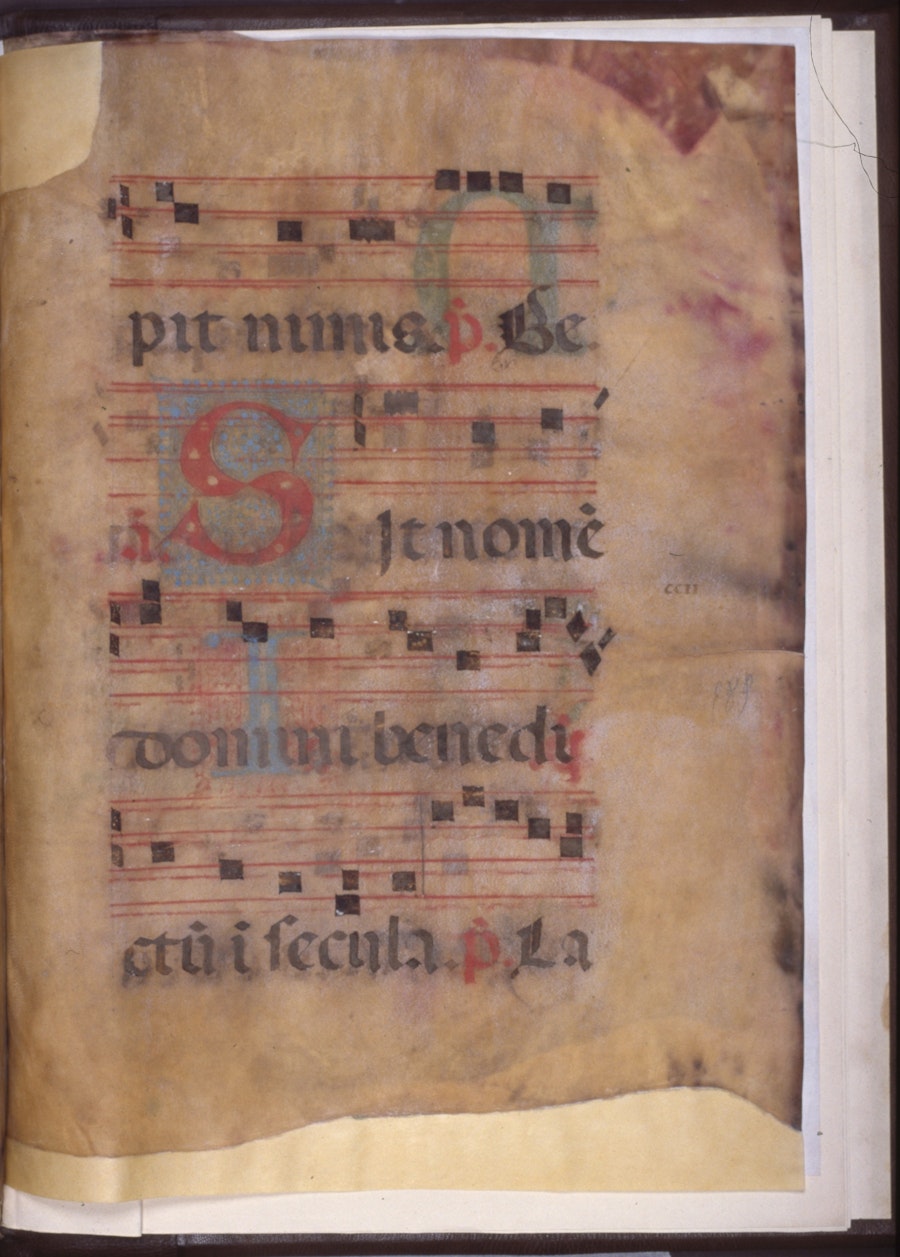 pit nimis. p̄. Be
añ. Sit nomē
domini benedi
ctū ī secula. p̄. La
ccii